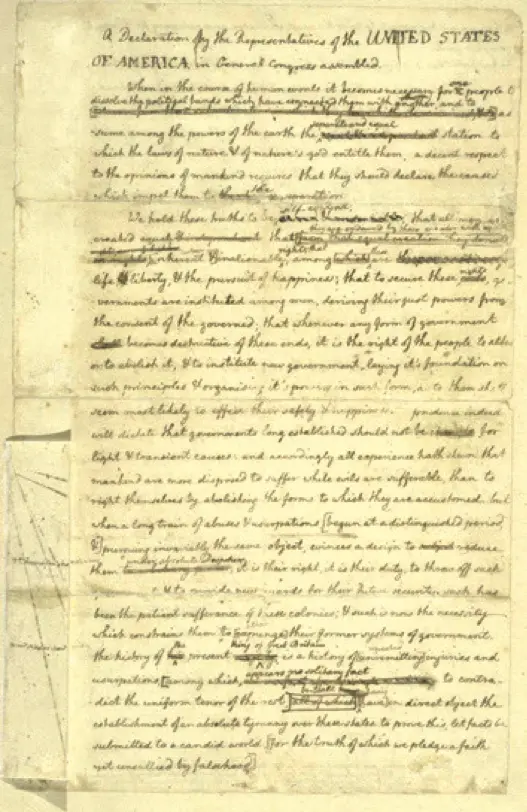 A Declaration by the Representatives of the UNITED STATES
OF AMERICA, in General Congress assembled.
When in the course of human events it becomes necessary for one people to
dissolve the political bands which have connected them with another, and to
as
separate and equal
sume among the powers of the earth the station to
which the laws of nature & of nature's god entitle them, a decent respect
to the opinions of mankind requires that they should declare the causes
which impel them to the separation.
self-evident
We hold these truths to be that all men are
they are endowed by their creator with
created equal that
rights; that
inherent & inalienable among which are
life, liberty, & the pursuit of happiness; that to secure these rights, go
vernments are instituted among men, deriving their just powers from
the consent of the governed; that whenever any form of government
becomes destructive of these ends, it is the right of the people to alter
or to abolish it, & to institute new government, laying it's foundation on
such principles & organising it's powers in such form, as to them shall
seem most likely to effect their safety & happiness. prudence indeed
will dictate that governments long established should not be changed for
light & transient causes: and accordingly all experience hath shewn that
mankind are more disposed to suffer while evils are sufferable, than to
right themselves by abolishing the forms to which they are accustomed. but
when a long train of abuses & usurpations [begun at a distinguished period,
&] pursuing invariably the same object, evinces a design to reduce
under absolute Despotism
them it is their right, it is their duty, to throw off such
& to provide new guards for their future security. such has
been the patient sufferance of these colonies; & such is now the necessity
which constrains them to [expunge] their former systems of government.
the king of Great Britain
the history of present is a history of unremitting injuries and
appears no solitary fact
usurpations, [among which, to contra-
but all
dict the uniform tenor of the rest have in direct object the
establishment of an absolute tyranny over these states. to prove this, let facts be
submitted to a candid world, [for the truth of which we pledge a faith
yet unsullied by falsehood]